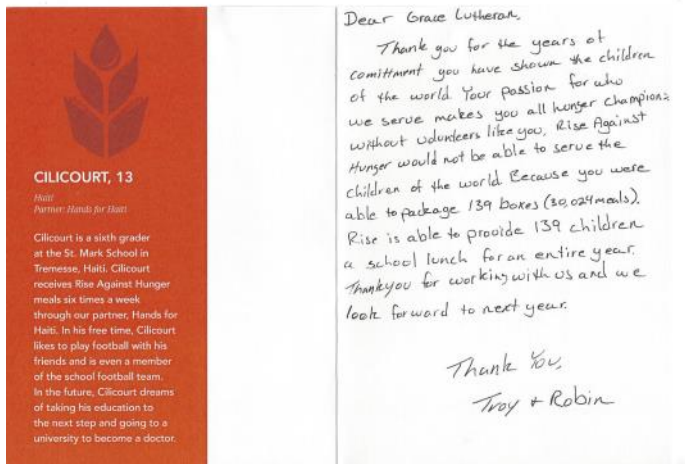 CILICOURT, 13
Haiti
Partner: Hands for Haiti
Cilicourt is a sixth grader
at the St. Mark School in
Tremesse, Haiti. Cilicourt
receives Rise Against Hunger
meals six times a week
through our partner, Hands for
Haiti. In his free time, Cilicourt
likes to play football with his
friends and is even a member
of the school football team.
In the future, Cilicourt dreams
of taking his education to
the next step and going to a
university to become a doctor.
Dear Grace Lutheran,
Thank you for the years of
comittment you have shown the children
of the world. Your passion for who
we serve makes you all hunger champions
without volunteers like you, Rise Against
Hunger would not be able to serve the
children of the world Because you were
able to package 139 boxes (30,024 meals).
Rise is able to provide 139 children
a school lunch for an entire year.
Thankyou for working with us and we
look forward to next year.
Thank You,
Troy + Robin